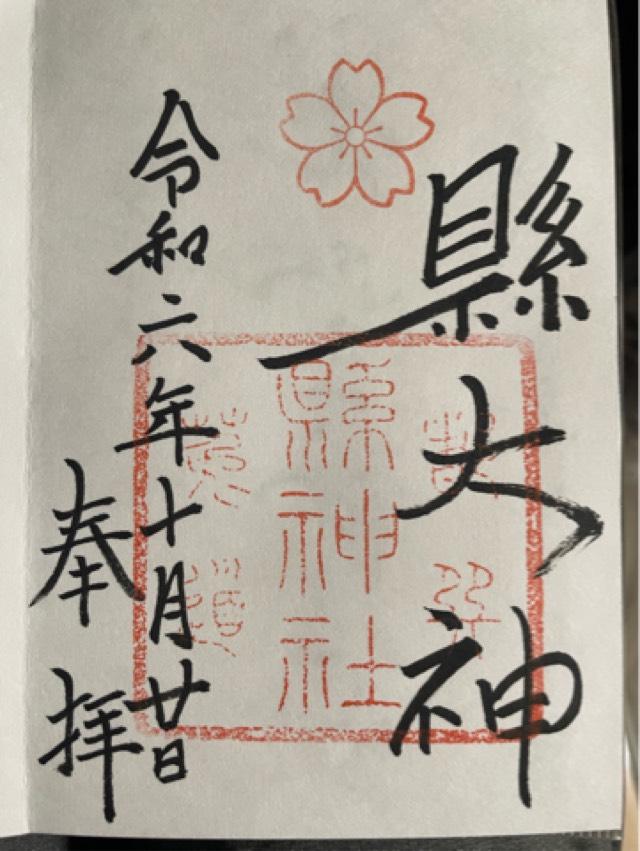 縣大神
縣神社
令和六年十月廿日
奉拝